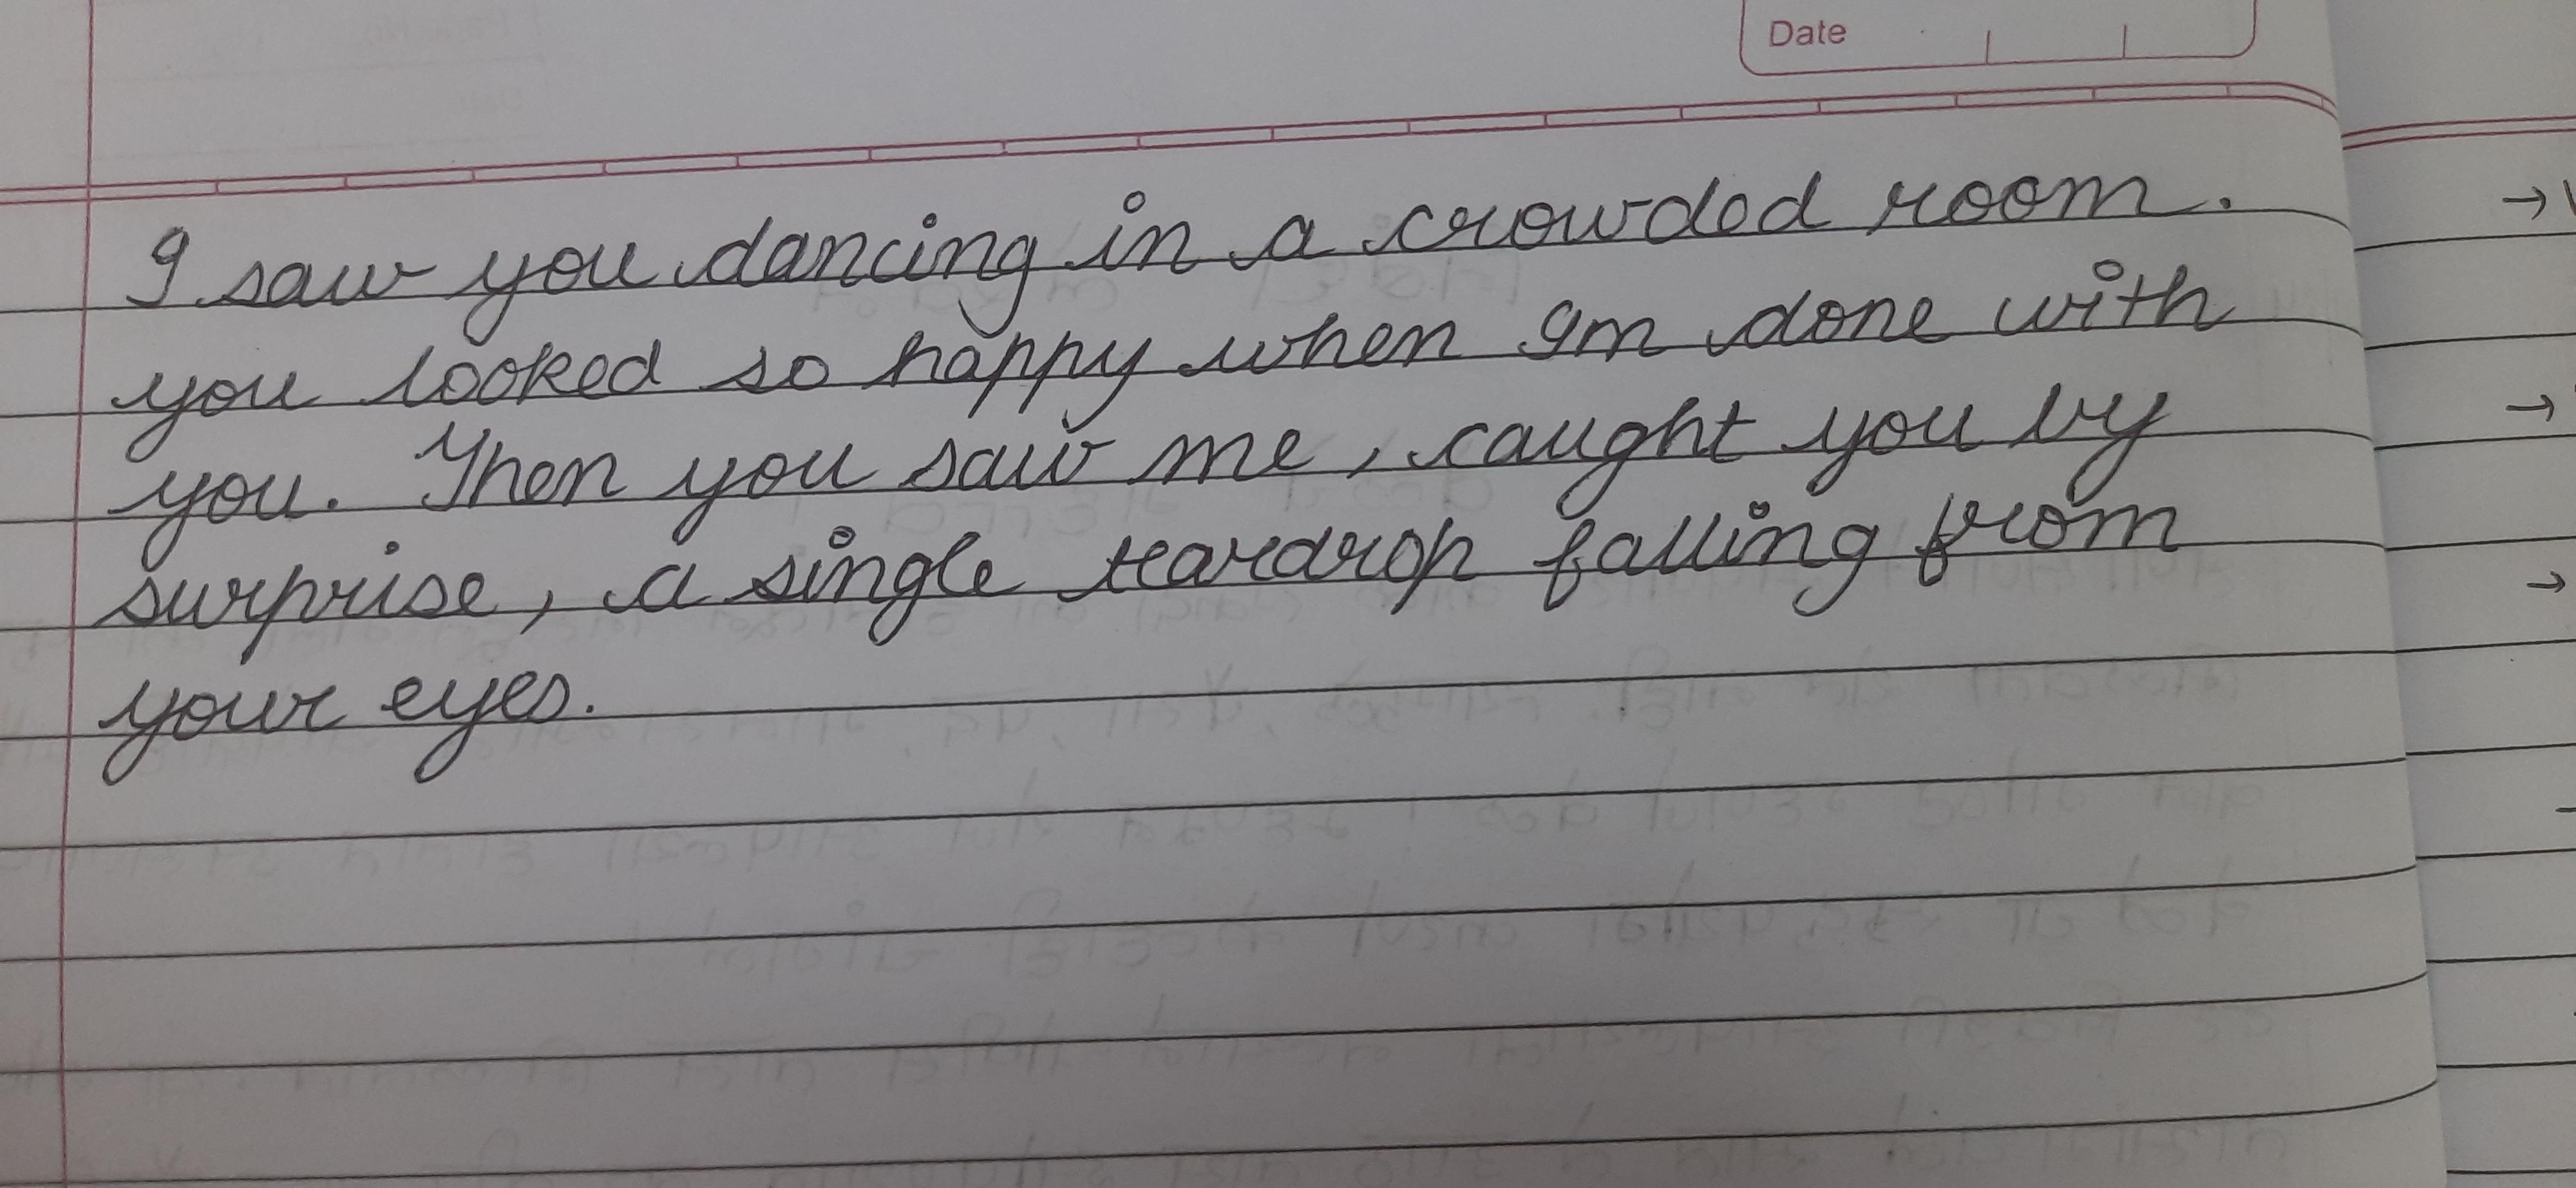 Date
I saw you dancing in a crowded room.
you looked so happy when Im done with
you. Then you saw me, caught you by
surprise, a single teardrop falling from
your eyes.